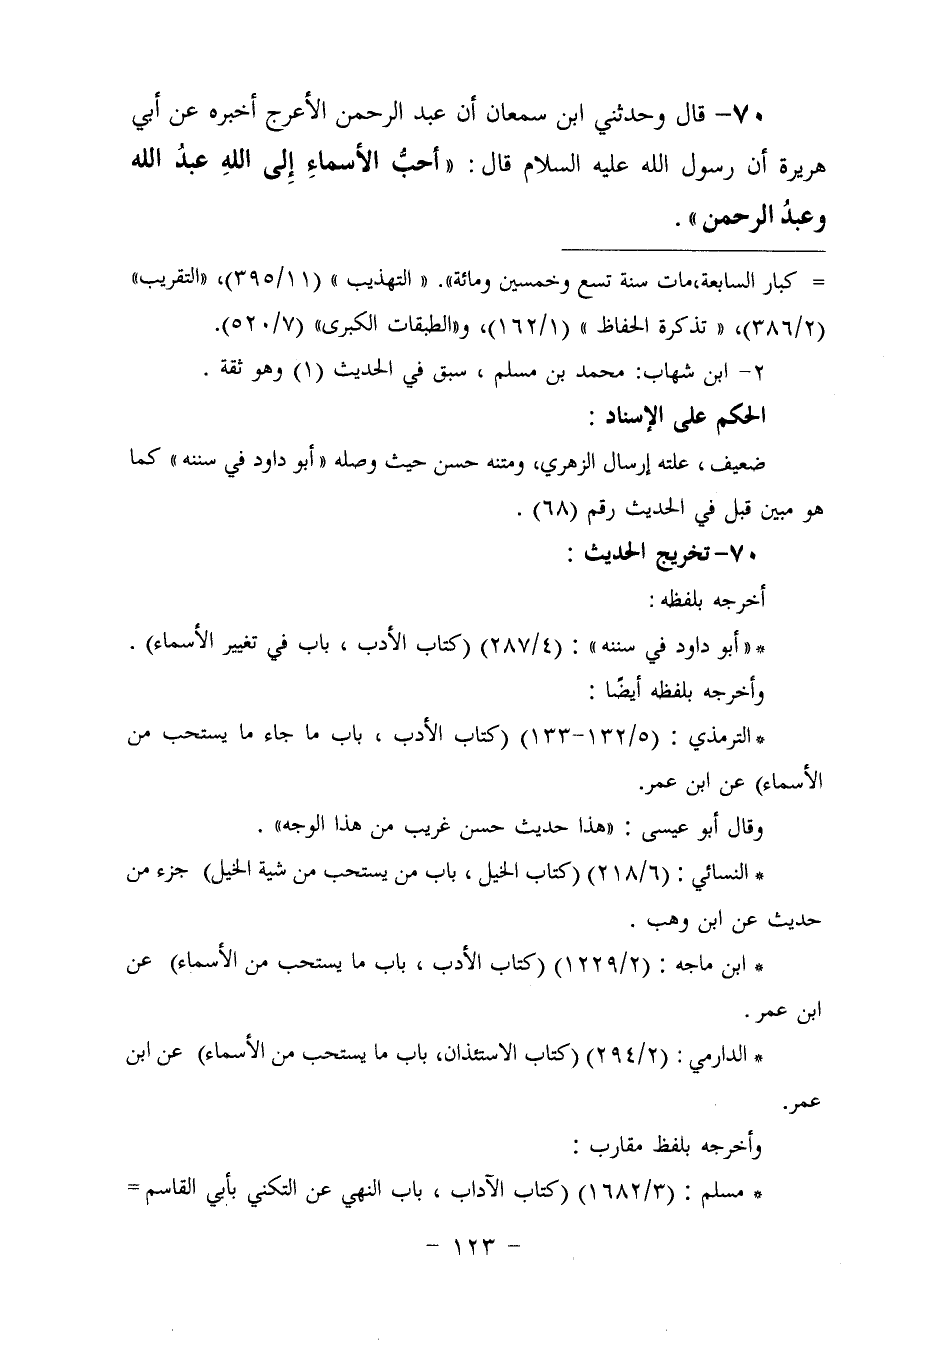 ٧٠- قال وحدثني ابن سمعان أن عبد الرحمن الأعرج أخبره عن أبي
هريرة أن رسول الله عليه السلام قال : « أحبُّ الأسماءِ إِلى اللهِ عبدُ الله
وعبدُ الرحمن » .
= كبار السابعة،مات سنة تسع وخمسين ومائة». « التهذيب » (٣٩٥/١١)، «التقريب»
(٣٨٦/٢)، « تذكرة الحفاظ » (١٦٢/١)، و«الطبقات الكبرى» (٥٢٠/٧).
٢- ابن شهاب: محمد بن مسلم ، سبق في الحديث (١) وهو ثقة .
الحكم على الإسناد :
ضعيف ، علته إرسال الزهري، ومتنه حسن حيث وصله «أبو داود في سننه» كما
هو مبين قبل في الحديث رقم (٦٨) .
٧٠- تخريج الحديث :
أخرجه بلفظه :
* «أبو داود في سننه» : (٢٨٧/٤) (كتاب الأدب ، باب في تغيير الأسماء) .
وأخرجه بلفظه أيضًا :
* الترمذي : (١٣٢/٥-١٣٣) (كتاب الأدب ، باب ما جاء ما يستحب من
الأسماء) عن ابن عمر.
وقال أبو عيسى : «هذا حديث حسن غريب من هذا الوجه» .
* النسائي : (٢١٨/٦) (كتاب الخيل ، باب من يستحب من شية الخيل) جزء من
حديث عن ابن وهب .
* ابن ماجه : (١٢٢٩/٢) (كتاب الأدب ، باب ما يستحب من الأسماء) عن
ابن عمر .
* الدارمي : (٢٩٤/٢) (كتاب الاستئذان، باب ما يستحب من الأسماء) عن ابن
عمر.
وأخرجه بلفظ مقارب :
* مسلم : (١٦٨٢/٣) (كتاب الآداب ، باب النهي عن التكني بأبي القاسم =
- ١٢٣ -